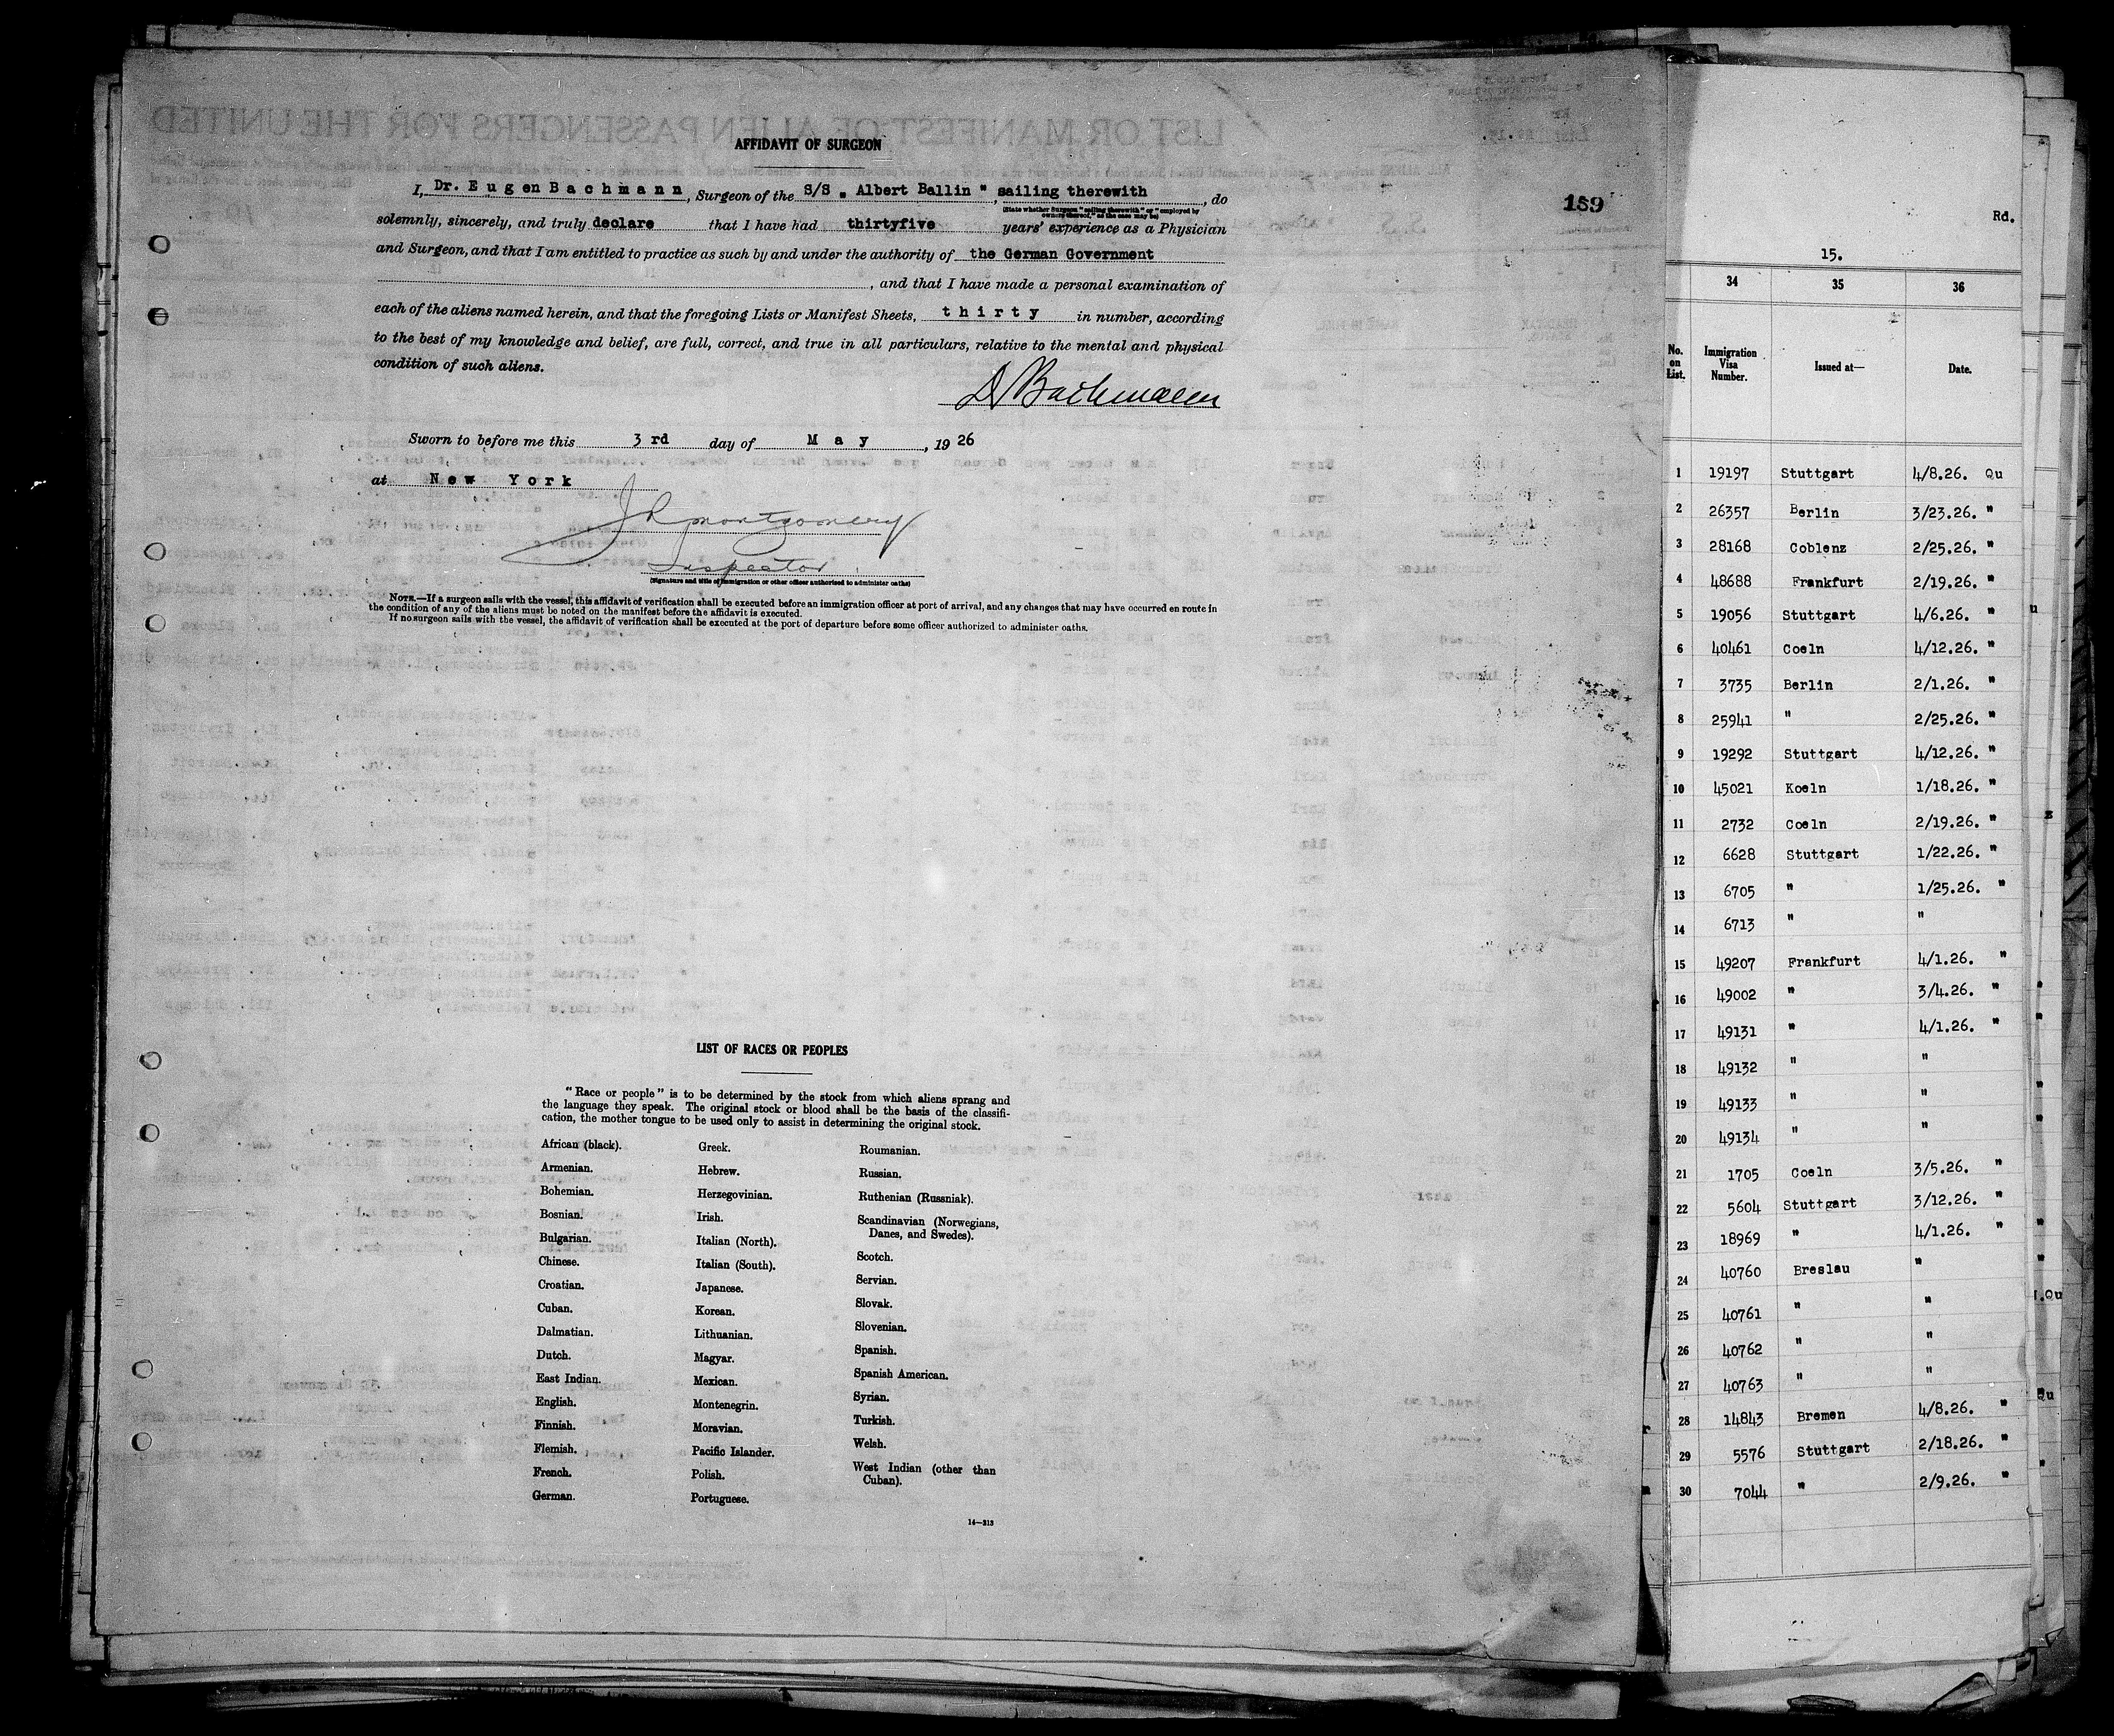 AFFIDAVIT OF SURGEON
I, Dr. Eugen Bachmann, Surgeon of the S/S " Albert Ballin " , sailing therewith , do
(State whether Surgeon "sailing therewith" or "employed by
owners thereof," as the case may be)
solemnly, sincerely, and truly declare that I have had thirtyfive years' experience as a Physician
and Surgeon, and that I am entitled to practice as such by and under the authority of the German Government
, and that I have made a personal examination of
each of the aliens named herein, and that the foregoing Lists or Manifest Sheets, thirty in number, according
to the best of my knowledge and belief, are full, correct, and true in all particulars, relative to the mental and physical
condition of such aliens.
D Bachmann
Sworn to before me this 3 rd day of May , 19 26
at New York
J R Montgomery
Inspector
(Signature and title of immigration or other officer authorized to administer oaths)
NOTE.—If a surgeon sails with the vessel, this affidavit of verification shall be executed before an immigration officer at port of arrival, and any changes that may have occurred en route in
the condition of any of the aliens must be noted on the manifest before the affidavit is executed.
If no surgeon sails with the vessel, the affidavit of verification shall be executed at the port of departure before some officer authorized to administer oaths.
159
LIST OF RACES OR PEOPLES
"Race or people" is to be determined by the stock from which aliens sprang and
the language they speak. The original stock or blood shall be the basis of the classifi-
cation, the mother tongue to be used only to assist in determining the original stock.
African (black).
Armenian.
Bohemian.
Bosnian.
Bulgarian.
Chinese.
Croatian.
Cuban.
Dalmatian.
Dutch.
East Indian.
English.
Finnish.
Flemish.
French.
German.
Greek.
Hebrew.
Herzegovinian.
Irish.
Italian (North).
Italian (South).
Japanese.
Korean.
Lithuanian.
Magyar.
Mexican.
Montenegrin.
Moravian.
Pacific Islander.
Polish.
Portuguese.
Roumanian.
Russian.
Ruthenian (Russniak).
Scandinavian (Norwegians,
Danes, and Swedes).
Scotch.
Servian.
Slovak.
Slovenian.
Spanish.
Spanish American.
Syrian.
Turkish.
Welsh.
West Indian (other than
Cuban).
14—313
Rd.
15.
34 35 36
No. on List. Immigration Visa Number. Issued at— Date.
1 19197 Stuttgart 4/8.26. Qu
2 26357 Berlin 3/23.26. "
3 28168 Coblenz 2/25.26. "
4 48688 Frankfurt 2/19.26. "
5 19056 Stuttgart 4/6.26. "
6 40461 Coeln 4/12.26. "
7 3735 Berlin 2/1.26. "
8 25941 " 2/25.26. "
9 19292 Stuttgart 4/12.26. "
10 45021 Koeln 1/18.26. "
11 2732 Coeln 2/19.26. "
12 6628 Stuttgart 1/22.26. "
13 6705 " 1/25.26. "
14 6713 " "
15 49207 Frankfurt 4/1.26. "
16 49002 " 3/4.26. "
17 49131 " 4/1.26. "
18 49132 " "
19 49133 " "
20 49134 " "
21 1705 Coeln 3/5.26. "
22 5604 Stuttgart 3/12.26. "
23 18969 " 4/1.26. "
24 40760 Breslau "
25 40761 " "
26 40762 " "
27 40763 " "
28 14843 Bremen 4/8.26. "
29 5576 Stuttgart 2/18.26. "
30 7044 " 2/9.26. "